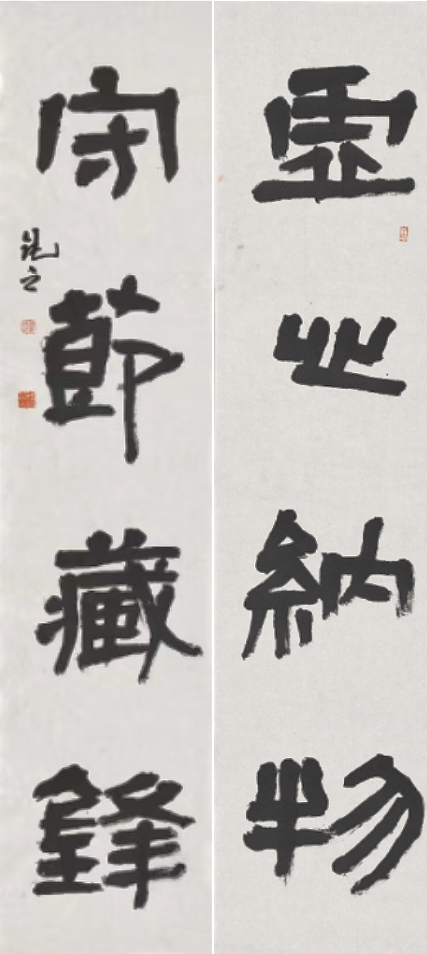 虛心納物
守節藏鋒